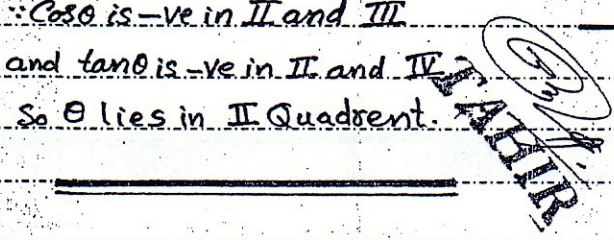 ∵ Cosθ is -ve in II and III
and tanθ is -ve in II and IV
So θ lies in II Quadrent.
TAHIR